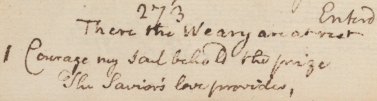 273
Enterd
There the Weary are at rest
1 Courage my Soul behold the prize
The Savior's love provides,